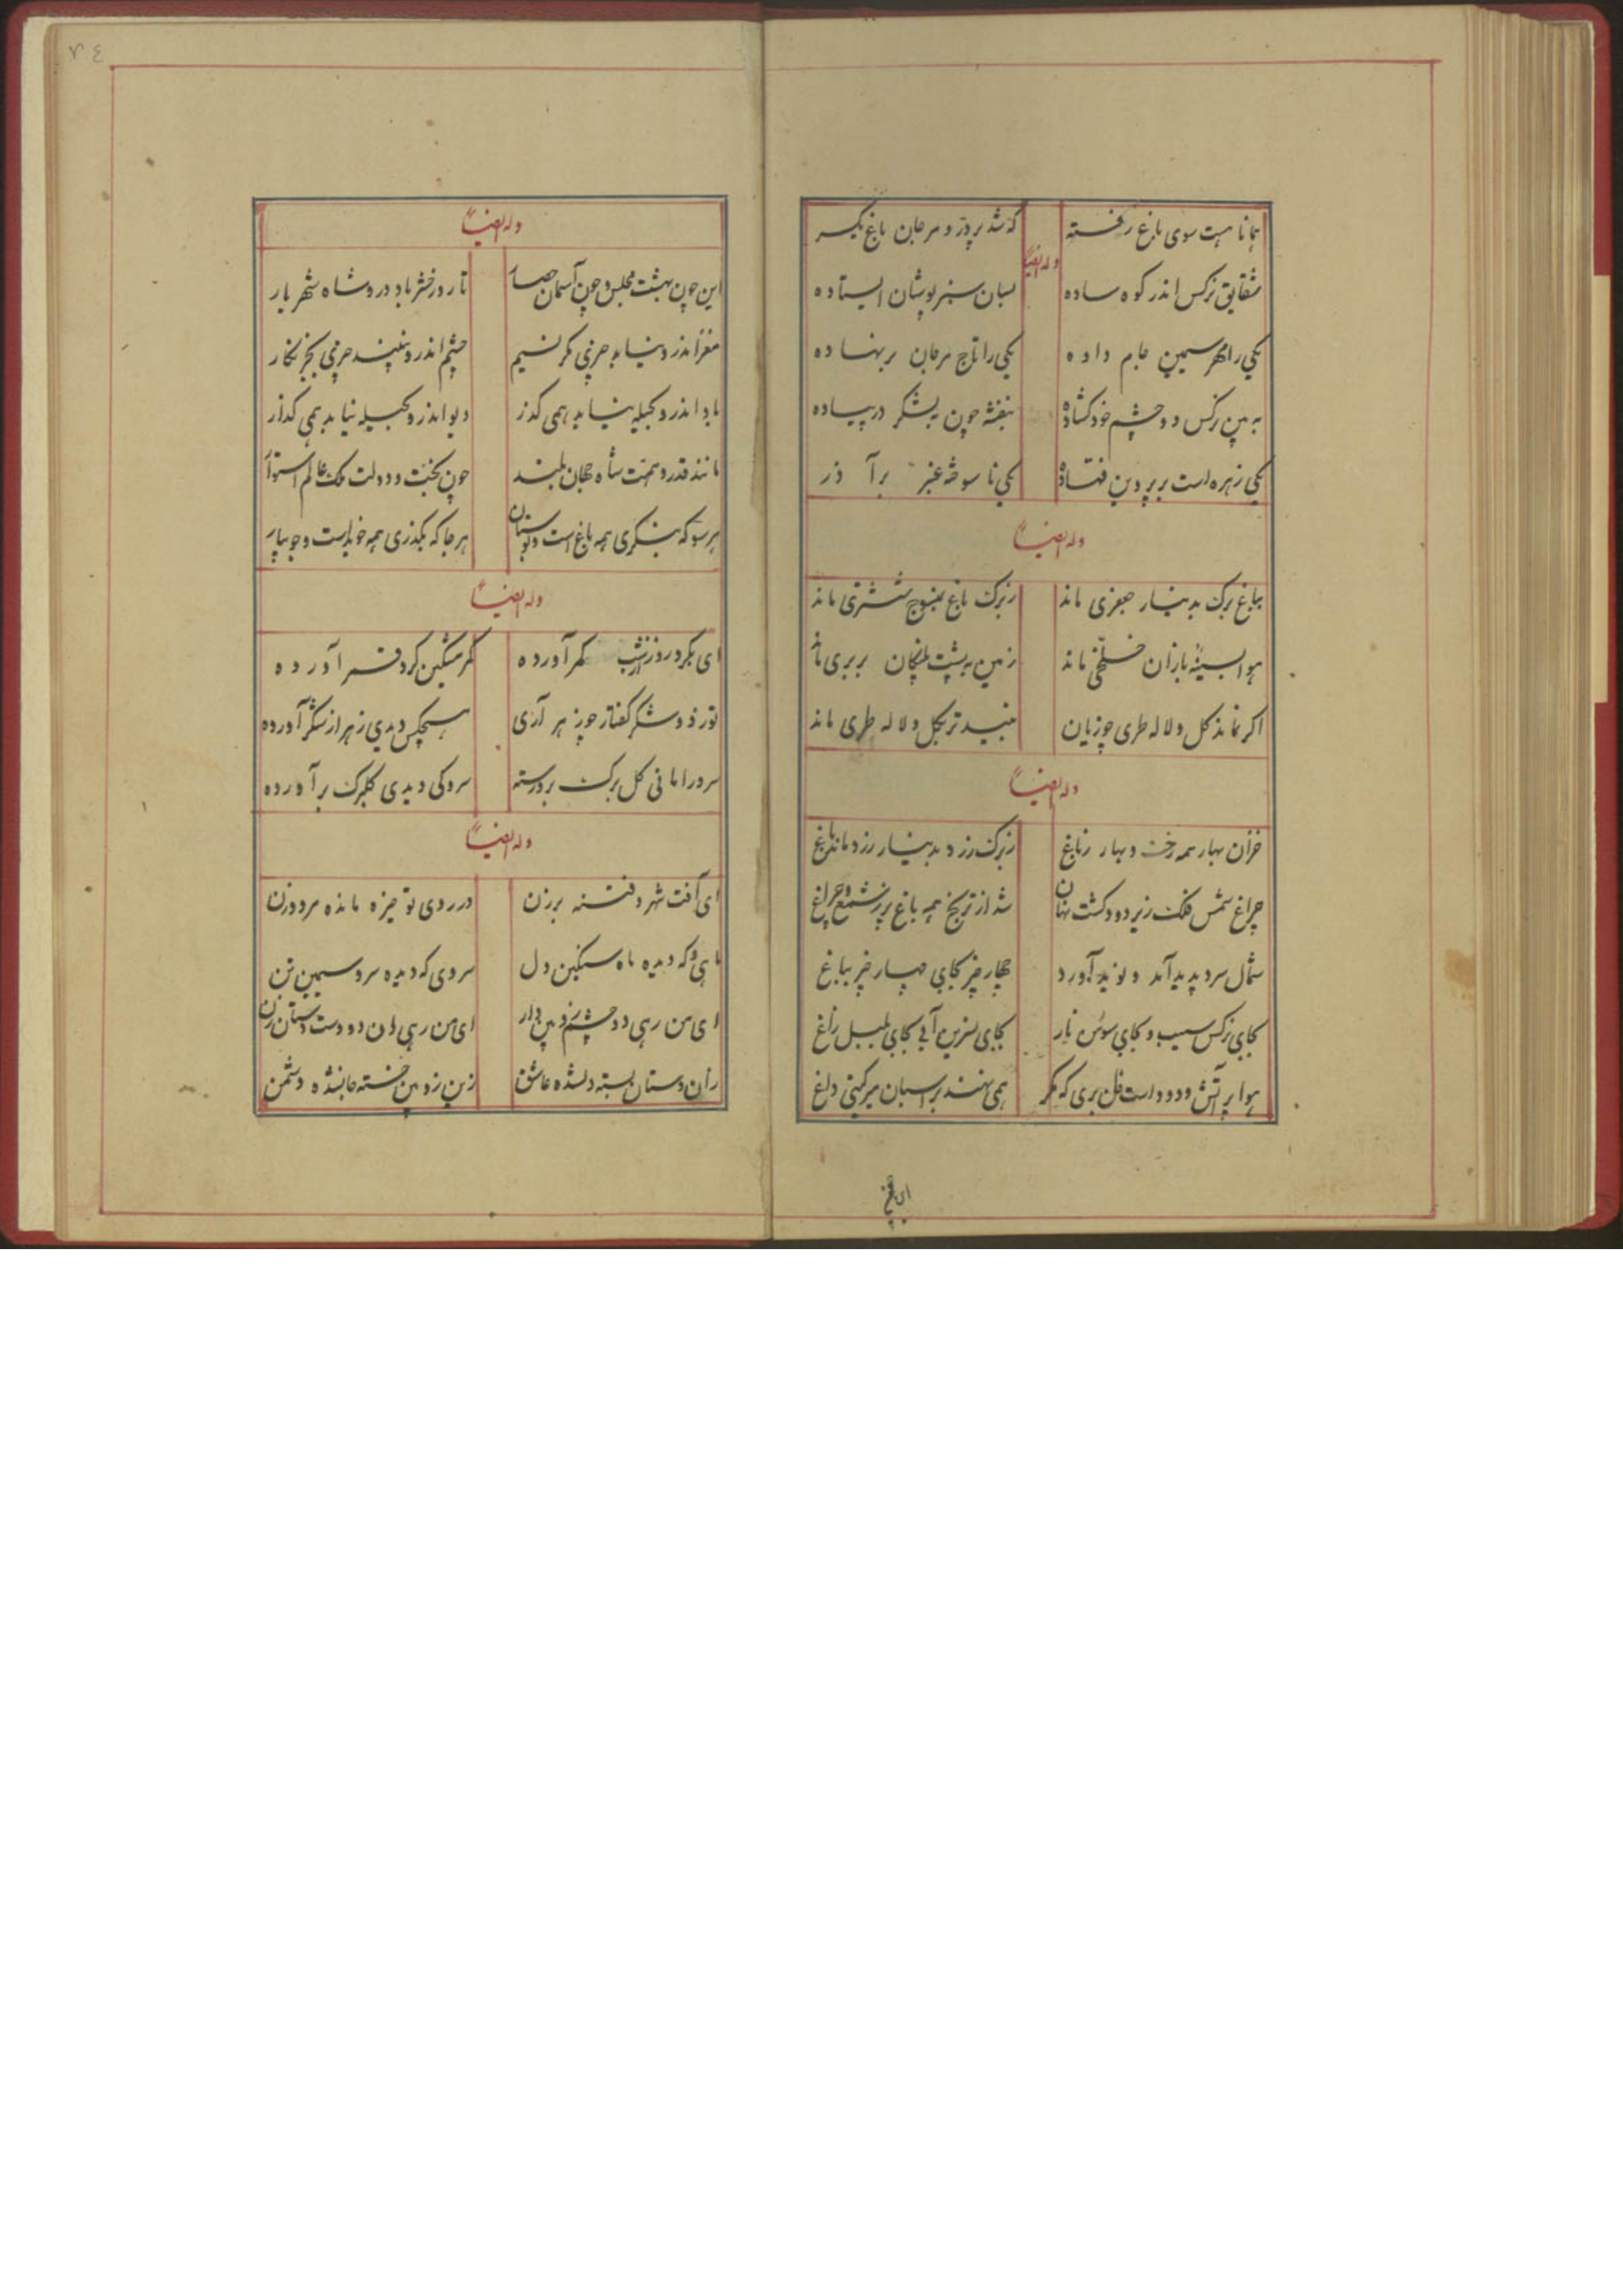 همانا هست سوی باغ رفته که شد پر در و مرجان باغ یکسر
وله ایضاً
شقایق نرکس اندر کوه ساده بسان سبز پوشان ایستاده
یکی را مهر سیمین جام داده یکی را تاج مرجان بر نهاده
به بین نرکس دو چشم خود کشاده بنفشه چون لشکر در پیاده
یکی زهره است بر پروین فتاده یکی نا سوخته عنبر بر آذر
وله ایضاً
بباغ برک بدینار جعفری ماند ز برک باغ بمنسوج ششتری ماند
هوا بسینه بازان خلخی ماند زمین به پشت پلنکان بربری ماند
اکر نماند کل و لاله طری چه زیان نبید تر بکل و لاله طری ماند
وله ایضاً
خزان بهار همه رخت و بهار ز باغ ز برک رز و بدینار رزد ماند باغ
چراغ شمس فلک زیر دود کشت نهان شد از ترنج همه باغ پر ز شمع و چراغ
شمال سرد پدید آمد و نوید آورد چهار چیز بجای چهار چیز بباغ
بجای نرکس سیب و بجای سوسن نار بجای نسرین آبی بجای بلبل زاغ
هوا پر آتش و دود است ظن بری که مکر همی نهند بر اسبان میر کیتی داغ
وله ایضاً
این چون بهشت مجلس و چون آسمان حصار تا روز حشر باد درو شاه شهریار
مغز اندرو نیابد چیزی مکر نسیم چشم اندرو نبیند چیزی بجز نکار
باد اندرو بحیله نیابد همی کذر دیو اندرو بحیله نیابد همی کذار
مانند قدر و همت شاه جهان بلند چون بخت و دولت ملک عالم استوار
هر سو که بنکری همه باغ است و بوستان هر جا که بکذری همه خوید است و جویبار
وله ایضاً
ای بکرد روز از شب کمر آورده کمر مشکین کرد قمر آورده
تو ز دو شکر کفتار چو زهر آری هیچکس دیدی زهر از شکر آورده
سرو را مانی کل برک برو رسته سرو کی دیدی کلبرک بر آورده
وله ایضاً
ای آفت شهر و فتنه برزن در روی تو خیره مانده مرد و زن
ماهی و که دیده ماه سنکین دل سروی که دیده سرو سیمین تن
ای من رهی دو چشم زوبین دار ای من رهی ان دو دست دستان زن
زان دستان بسته دلشده عاشق زین زوبین خسته جانشده دشمن